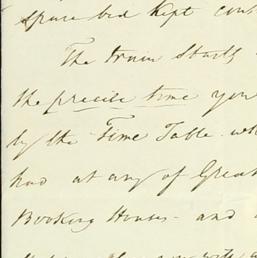 spare bed kept con
The train starts
the precise time you
by the Time Table. wh
had at any of Great
Booking Houses - and